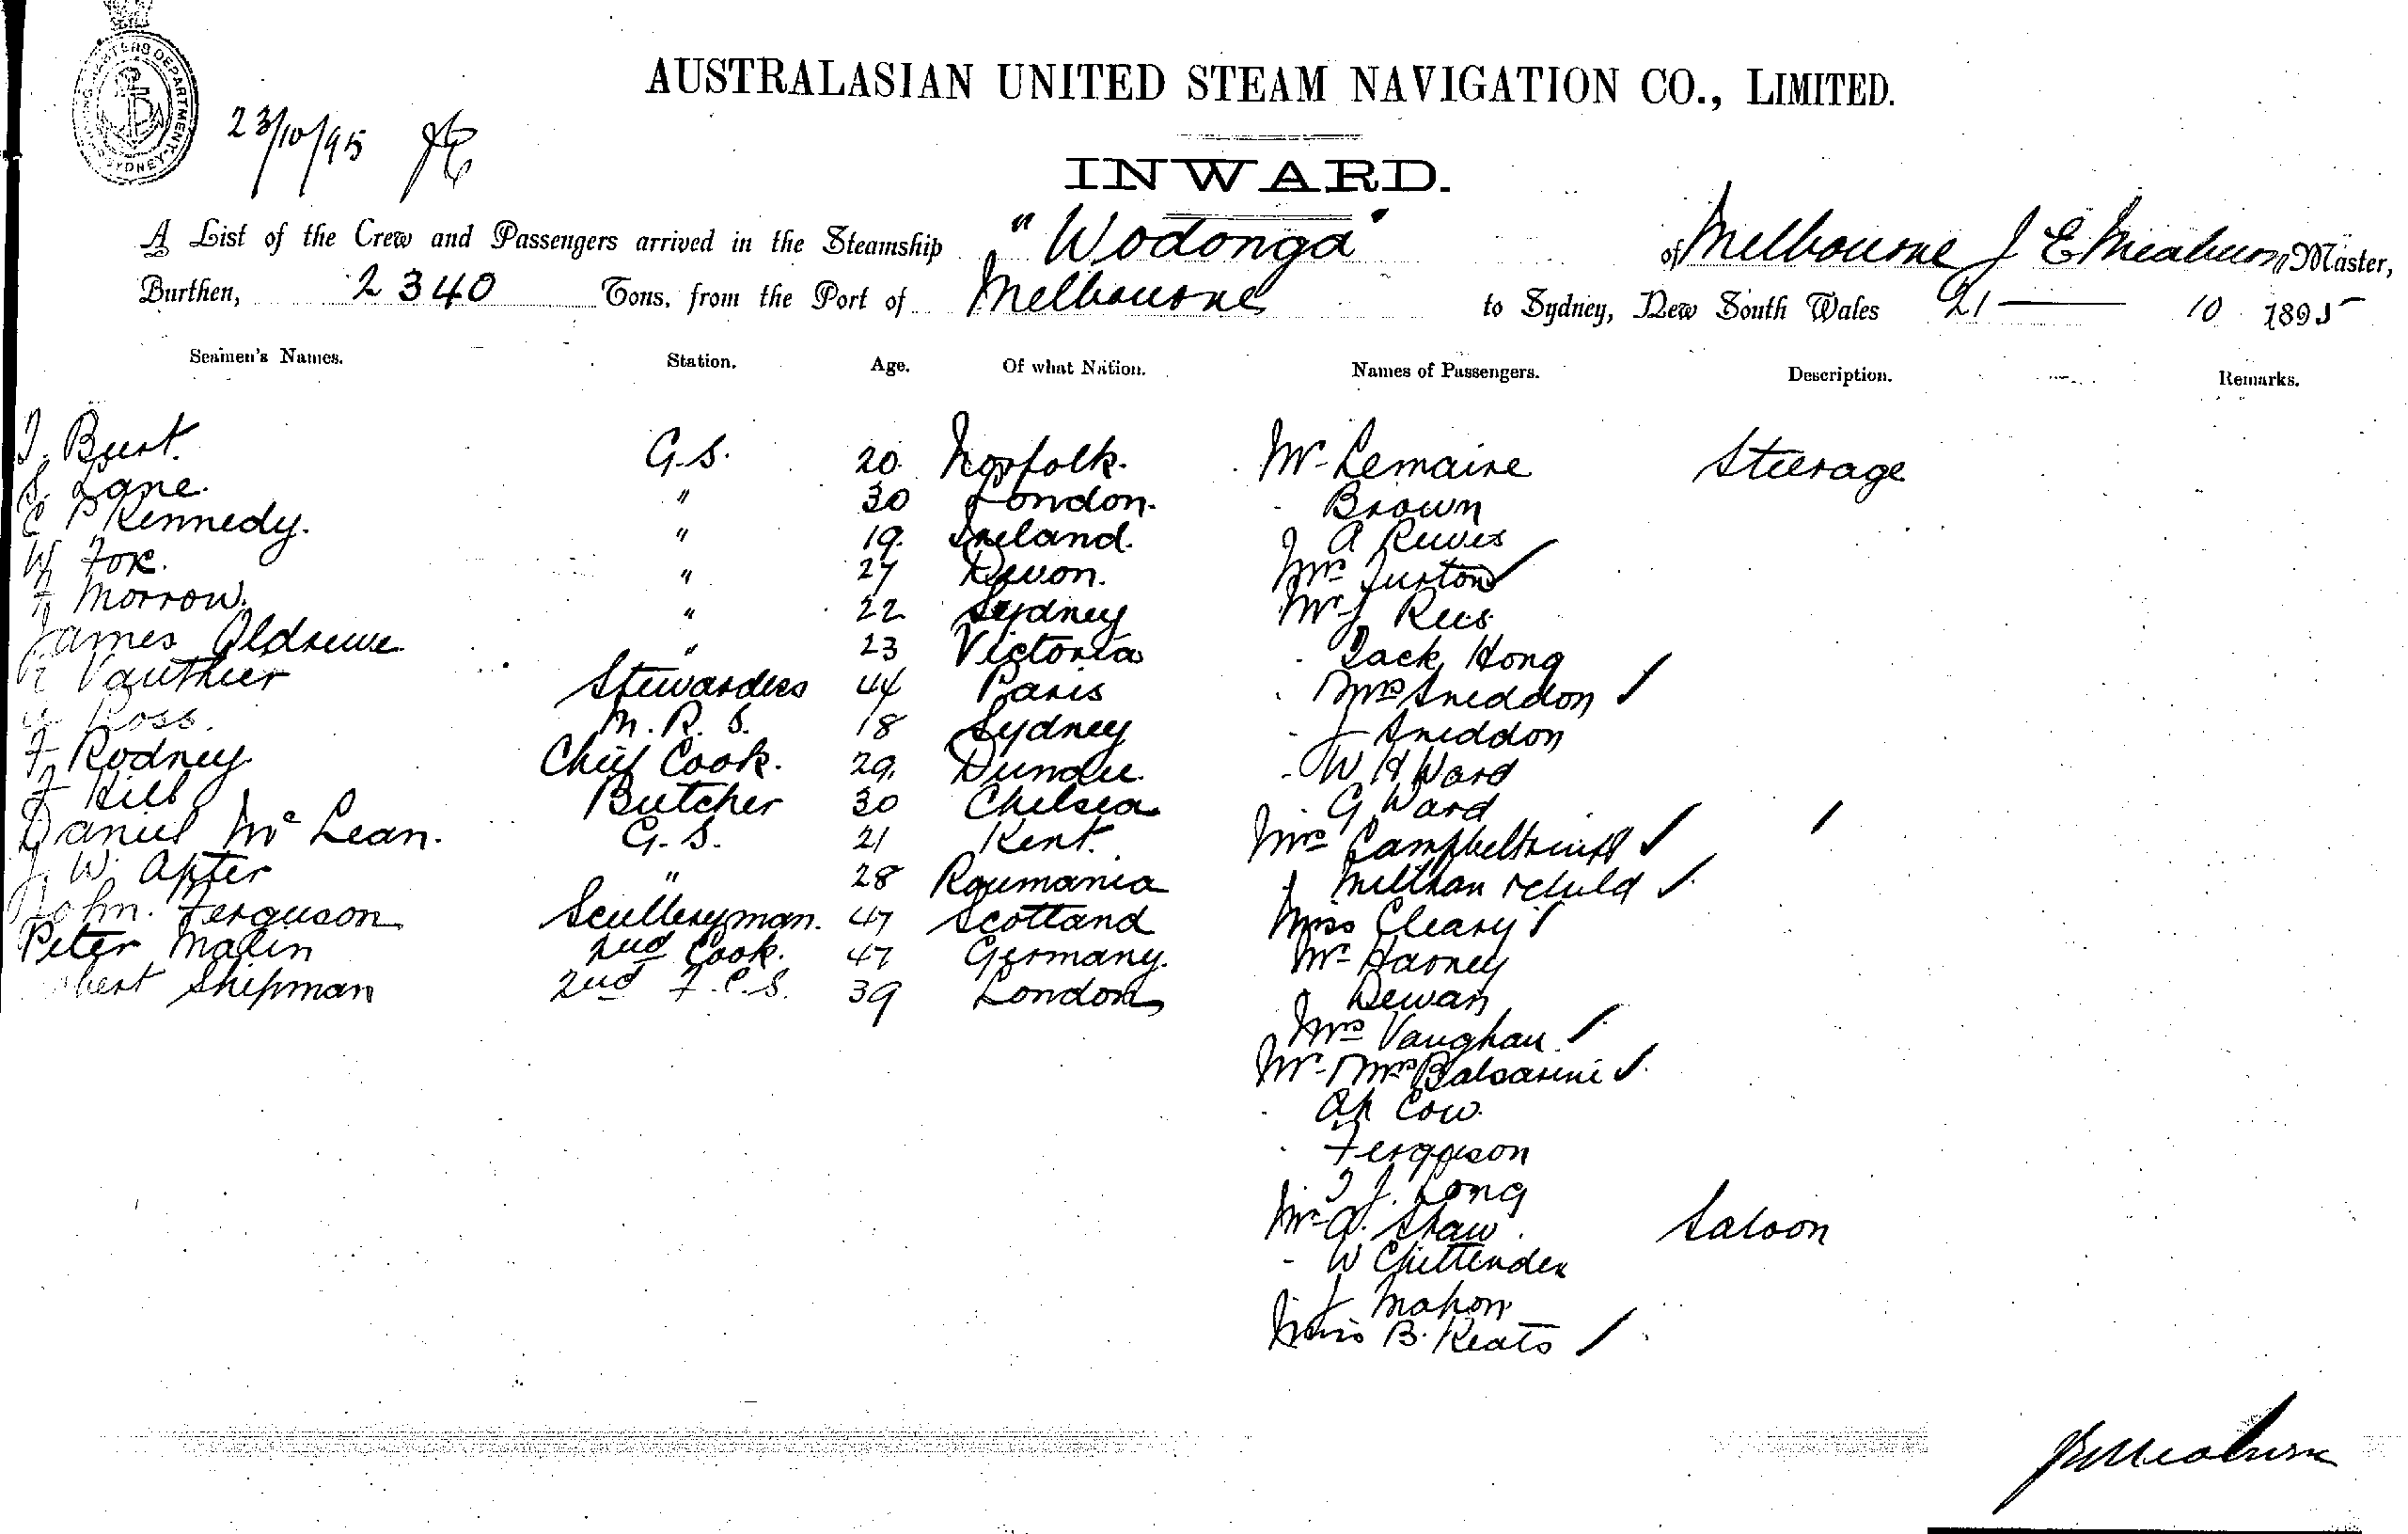 SHIPPING MASTERS DEPARTMENT SYDNEY
23/10/95
AUSTRALASIAN UNITED STEAM NAVIGATION CO., LIMITED.
INWARD.
A List of the Crew and Passengers arrived in the Steamship "Wodonga" of Melbourne J E Meaburn, Master,
Burthen, 2340 Tons, from the Port of Melbourne to Sydney, New South Wales 21 — 10 1895
Seamen's Names. Station. Age. Of what Nation. Names of Passengers. Description. Remarks.
T. Burt. G.S. 20. Norfolk. Mr Lemaire Steerage
S. Lane. " 30 London. - Brown
C P Kennedy. " 19. Ireland. " A Reeves
W Fox. " 27 Devon. Mrs Turton
F Morrow. " 22 Sydney Mr J Rees
James Aldrewe " 23 Victoria - Jack Hong
Vauthier Stewardess 44 Paris - Mrs Sneddon
Ross. M.R.S. 18 Sydney - J Sneddon
F Rodney Chief Cook. 29. Dundee. - W H Ward
F Hill Butcher 30 Chelsea - G Ward
Daniel McLean. G.S. 21 Kent. Mrs
J. W. Apter " 28 Roumania " Millman & child
John. Ferguson Sculleryman. 47 Scotland Miss Cleary
Peter Malin 2nd Cook. 47 Germany. Mr Harney
Shipman 2nd F.C.S. 39 London Dewan
Mrs Vaughan
Mr Mrs Balsarini
- Ah Cow.
- Ferguson
T J. Long
Mr A. Shaw. Saloon
- W Chittenden
- J Mahon
Miss B. Keats
J E Meaburn